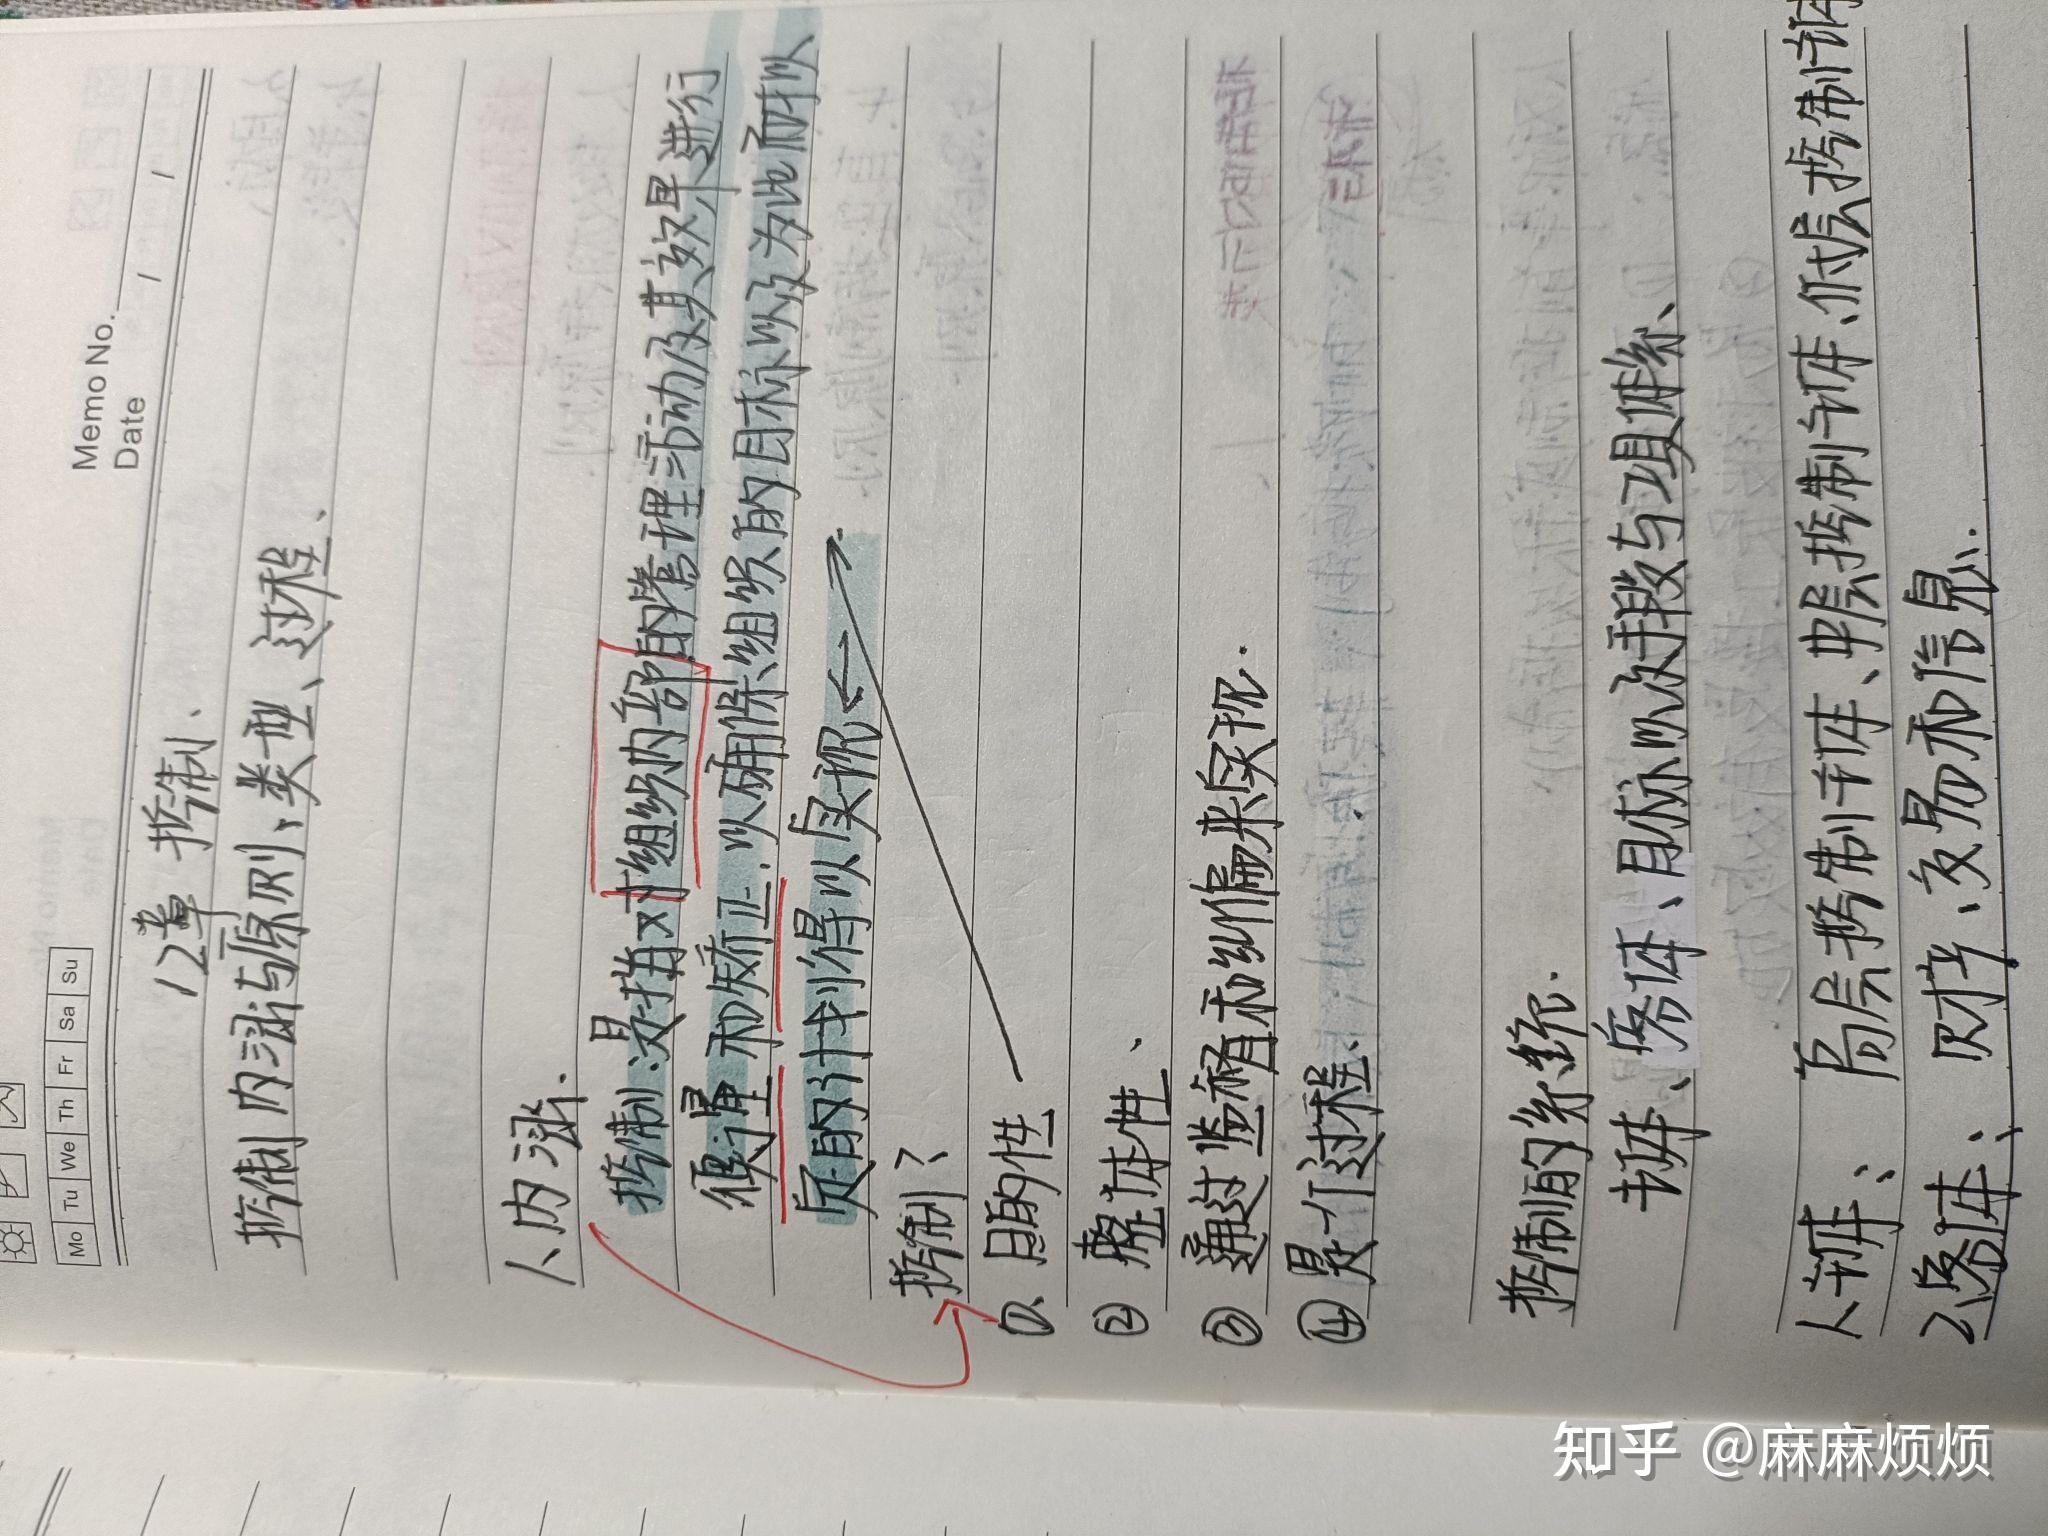 Memo No.
Date / /
Mo Tu We Th Fr Sa Su
12章 控制、
控制内涵与原则、类型、过程、
1、内涵.
控制:是指对组织内部的管理活动及其效果进行
衡量和矫正.以确保组织的目标以及为此而拟
定的计划得以实现
控制?
①、目的性
②整体性、
③通过监督和纠偏来实现.
④是个过程.
控制的系统.
主体、客体、目标以及手段与工具体系、
1、主体、高层控制主体、中层控制主体、低层控制主体
2、客体、财产、交易和信息.
知乎 @麻麻烦烦